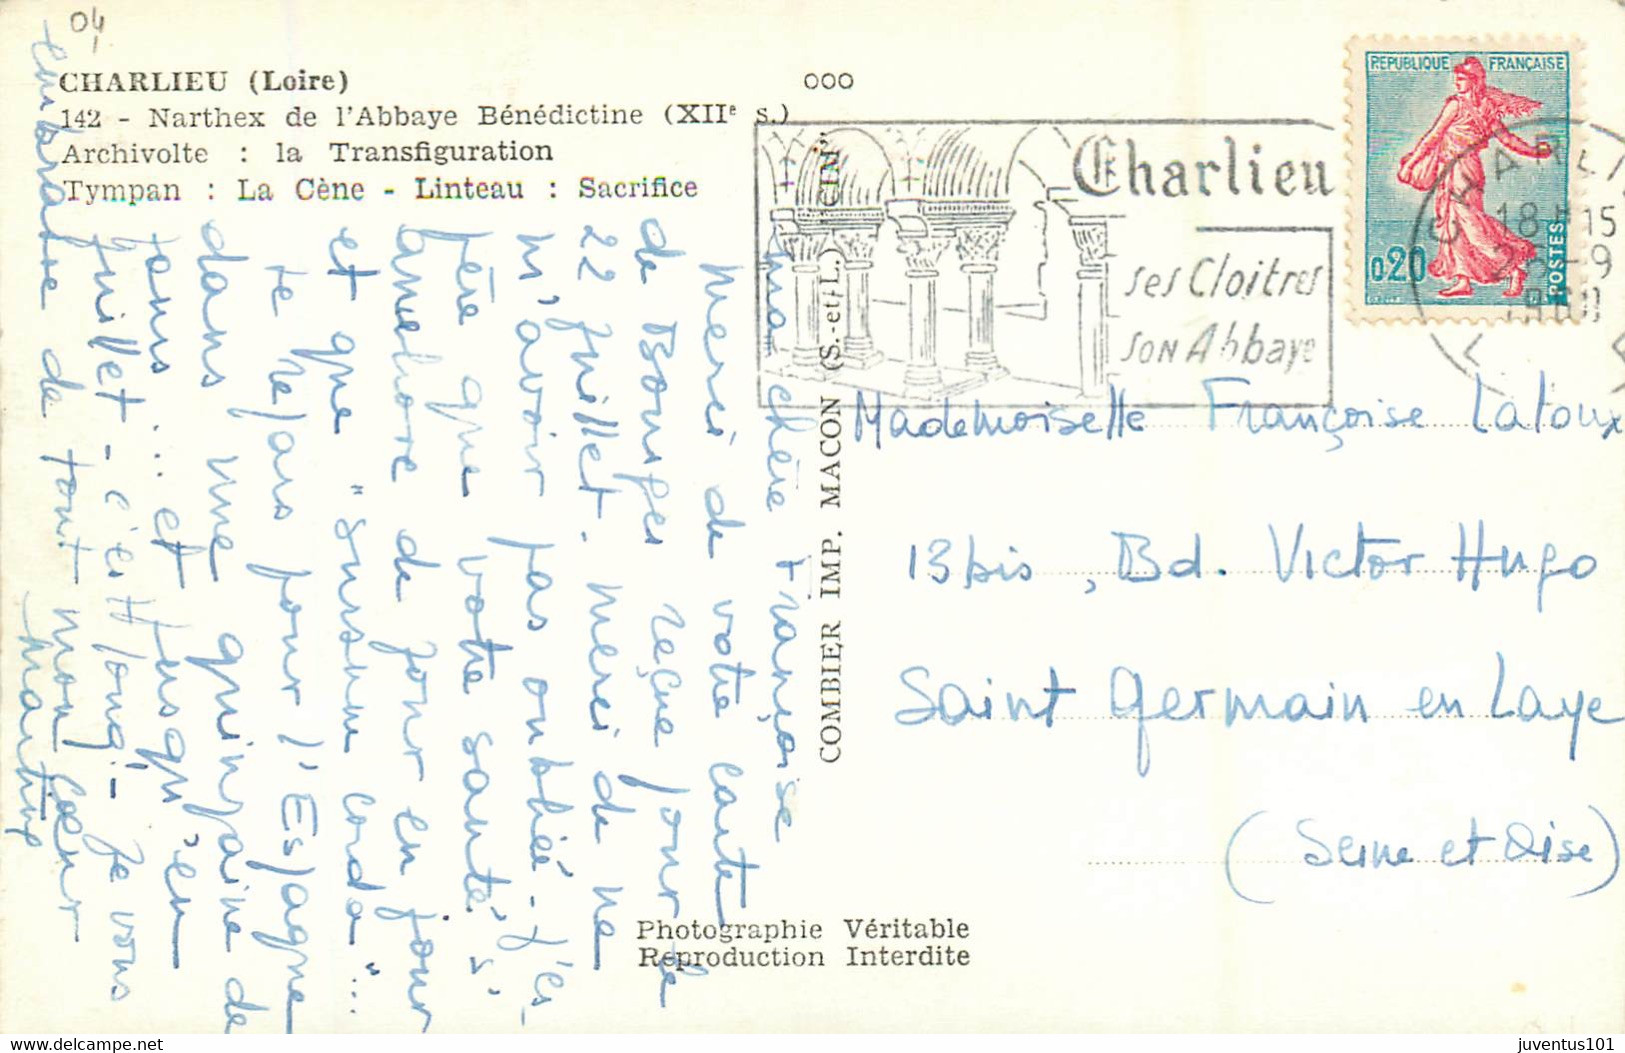 04
CHARLIEU (Loire)
142 - Narthex de l'Abbaye Bénédictine (XIIe s.)
Archivolte : la Transfiguration
Tympan : La Cène - Linteau : Sacrifice
ooo
Charlieu
ses Cloitres
son Abbaye
REPUBLIQUE FRANÇAISE
0,20
POSTES
CHARLIEU
18 H 15
-9
1960
"CIM"
COMBIER IMP. MACON (S.-et-L.)
Ma chère Françoise
Merci de votre carte
de Bourges reçue jour le
22 juillet. Merci de ne
m'avoir pas oubliée - J'es-
père que votre santé s'
améliore de jour en jour
et que "sursum corda"...
Je repars pour l'Espagne
dans une quinzaine de
jours... et jusqu'en
juillet - c'est long! - Je vous
embrasse de tout mon cœur
Martine
Mademoiselle Françoise Latoux
13 bis, Bd. Victor Hugo
Saint Germain en Laye
(Seine et Oise)
Photographie Véritable
Reproduction Interdite
delcampe.net
juventus101